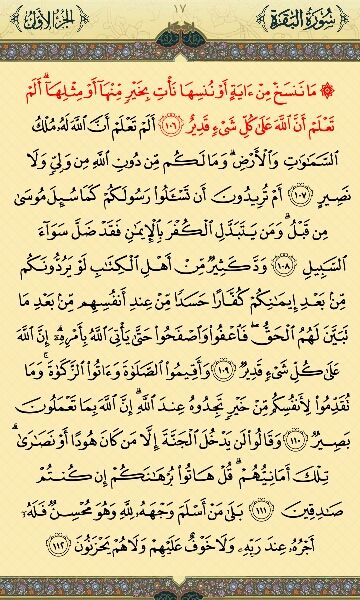 سُورَةُ البَقَرَة ١٧ الجُزءُ الأَوَّل
مَا نَنسَخْ مِنْ ءَايَةٍ أَوْ نُنسِهَا نَأْتِ بِخَيْرٍ مِّنْهَآ أَوْ مِثْلِهَآ ۗ أَلَمْ
تَعْلَمْ أَنَّ ٱللَّهَ عَلَىٰ كُلِّ شَىْءٍ قَدِيرٌ ١٠٦ أَلَمْ تَعْلَمْ أَنَّ ٱللَّهَ لَهُۥ مُلْكُ
ٱلسَّمَٰوَٰتِ وَٱلْأَرْضِ ۗ وَمَا لَكُم مِّن دُونِ ٱللَّهِ مِن وَلِىٍّ وَلَا
نَصِيرٍ ١٠٧ أَمْ تُرِيدُونَ أَن تَسْـَٔلُوا۟ رَسُولَكُمْ كَمَا سُئِلَ مُوسَىٰ
مِن قَبْلُ ۗ وَمَن يَتَبَدَّلِ ٱلْكُفْرَ بِٱلْإِيمَٰنِ فَقَدْ ضَلَّ سَوَآءَ
ٱلسَّبِيلِ ١٠٨ وَدَّ كَثِيرٌ مِّنْ أَهْلِ ٱلْكِتَٰبِ لَوْ يَرُدُّونَكُم
مِّنۢ بَعْدِ إِيمَٰنِكُمْ كُفَّارًا حَسَدًا مِّنْ عِندِ أَنفُسِهِم مِّنۢ بَعْدِ مَا
تَبَيَّنَ لَهُمُ ٱلْحَقُّ ۖ فَٱعْفُوا۟ وَٱصْفَحُوا۟ حَتَّىٰ يَأْتِىَ ٱللَّهُ بِأَمْرِهِۦٓ ۗ إِنَّ ٱللَّهَ
عَلَىٰ كُلِّ شَىْءٍ قَدِيرٌ ١٠٩ وَأَقِيمُوا۟ ٱلصَّلَوٰةَ وَءَاتُوا۟ ٱلزَّكَوٰةَ ۚ وَمَا
تُقَدِّمُوا۟ لِأَنفُسِكُم مِّنْ خَيْرٍ تَجِدُوهُ عِندَ ٱللَّهِ ۗ إِنَّ ٱللَّهَ بِمَا تَعْمَلُونَ
بَصِيرٌ ١١٠ وَقَالُوا۟ لَن يَدْخُلَ ٱلْجَنَّةَ إِلَّا مَن كَانَ هُودًا أَوْ نَصَٰرَىٰ ۗ
تِلْكَ أَمَانِيُّهُمْ ۗ قُلْ هَاتُوا۟ بُرْهَٰنَكُمْ إِن كُنتُمْ
صَٰدِقِينَ ١١١ بَلَىٰ مَنْ أَسْلَمَ وَجْهَهُۥ لِلَّهِ وَهُوَ مُحْسِنٌ فَلَهُۥٓ
أَجْرُهُۥ عِندَ رَبِّهِۦ وَلَا خَوْفٌ عَلَيْهِمْ وَلَا هُمْ يَحْزَنُونَ ١١٢